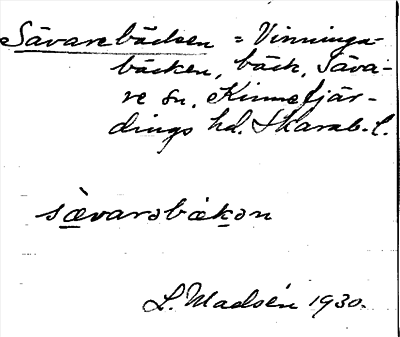 Sävarebäcken = Vinninga-
bäcken, bäck, Säva-
re sn, Kinnefjär-
dings hd. Skarab. l.
sævarəbækən
L. Madsén 1930.